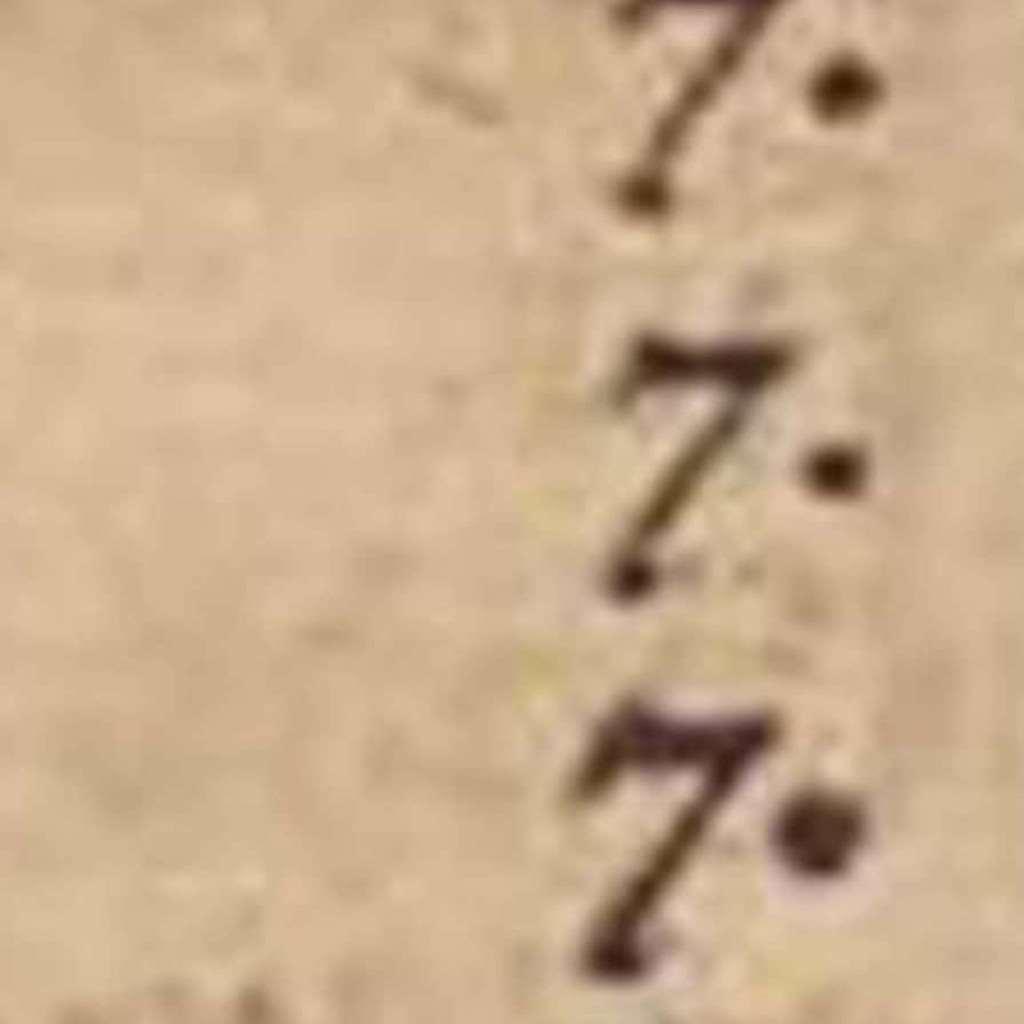 7.
7.
7.